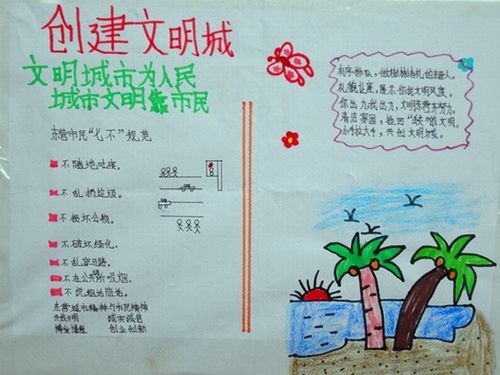 创建文明城
文明城市为人民
城市文明靠市民
东营市民"七不"规范
不随地吐痰。
不乱扔垃圾。
不损坏公物。
不破坏绿化。
不乱穿马路。
不在公共场所吸烟。
不说粗话脏话。
东营城市精神与市民精神
开放文明 诚实诚信
博爱博雅 创业创新
有序排队，做彬彬有礼的东营人。
礼貌让座，展示你我文明风度。
你出力我出力，文明东营齐努力。
清洁家园，捡回"失"的文明。
小手拉大手，共创文明城。